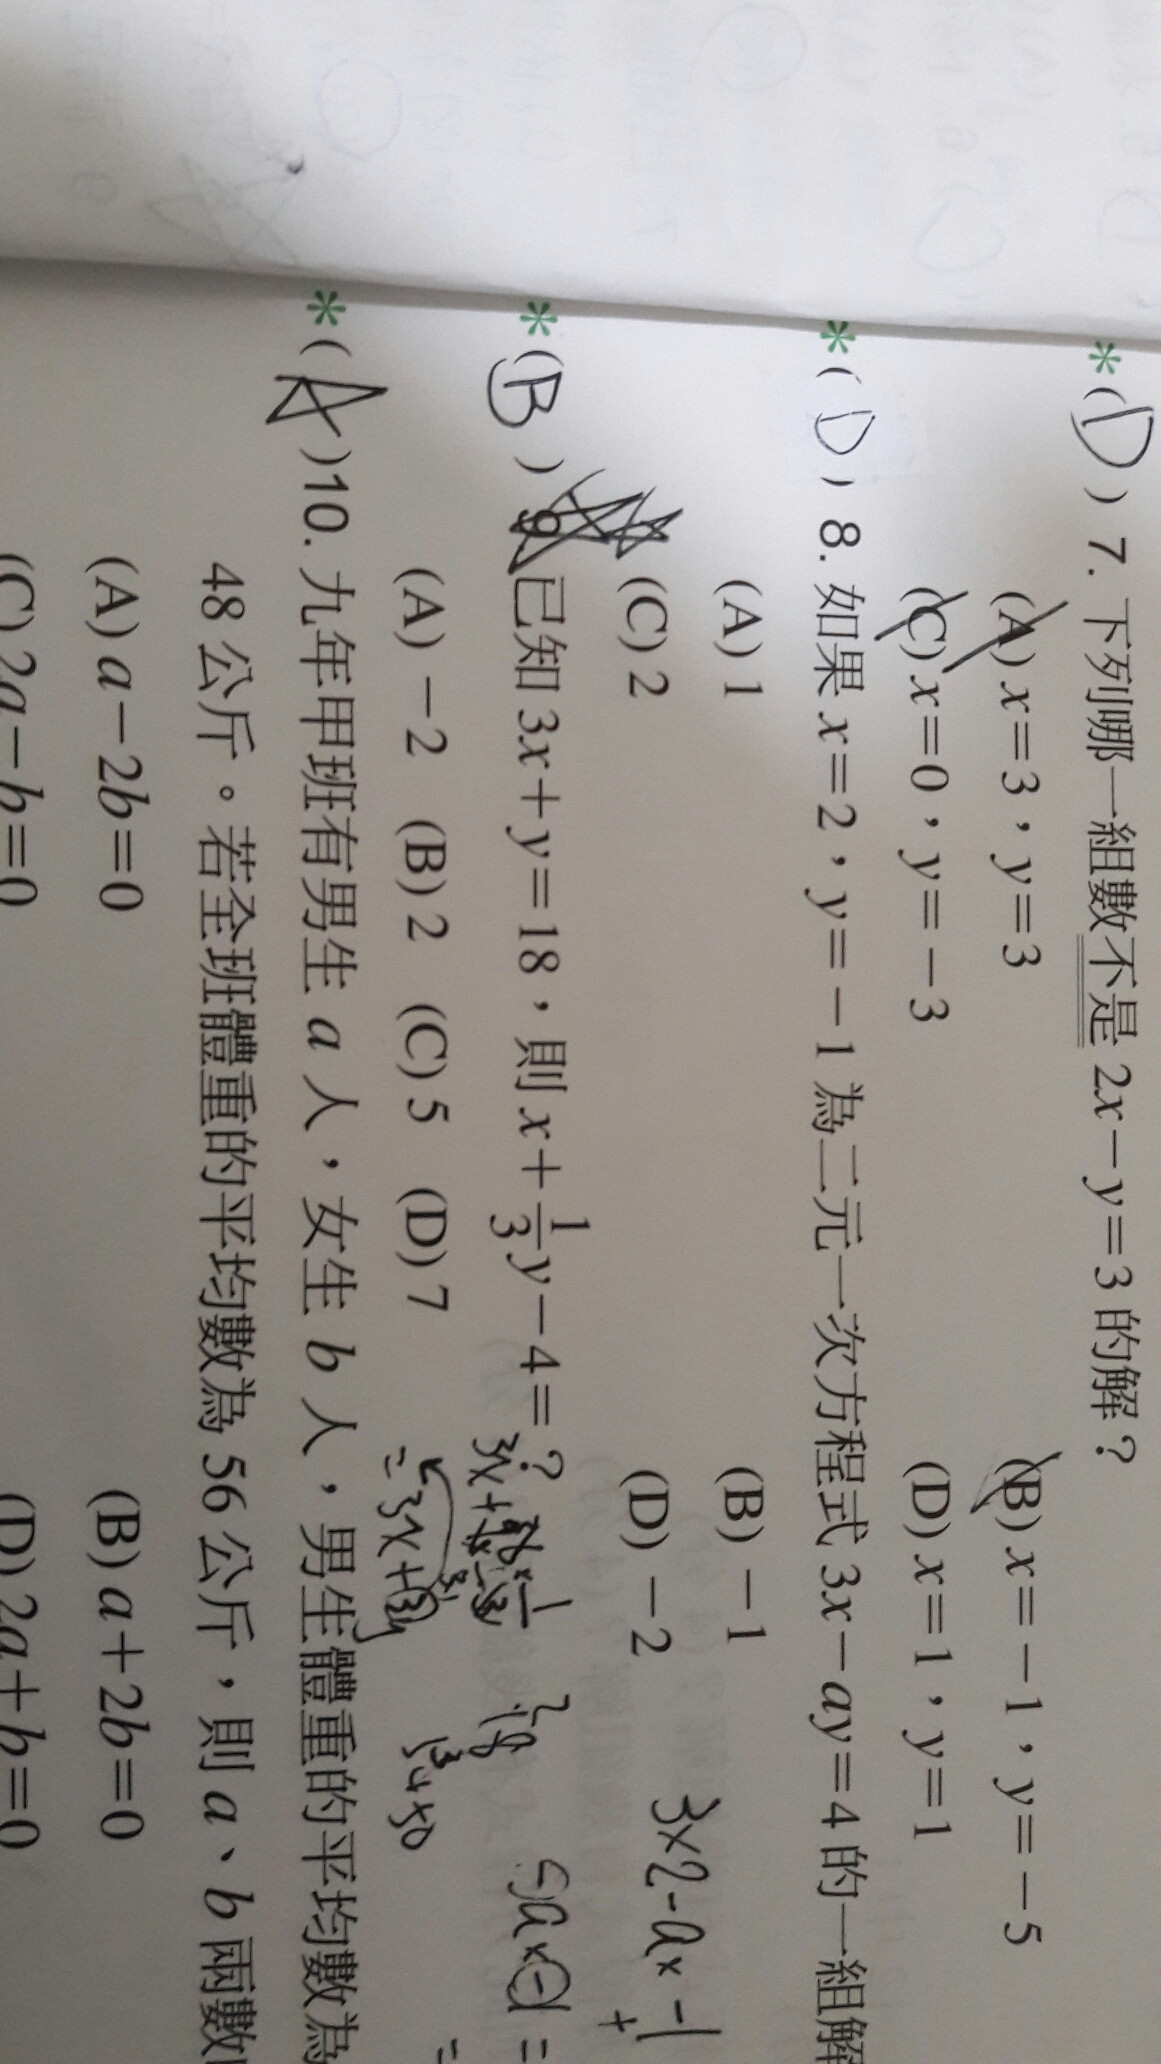 *( D ) 7. 下列哪一組數不是 2x－y＝3 的解？
(A) x＝3，y＝3 (B) x＝－1，y＝－5
(C) x＝0，y＝－3 (D) x＝1，y＝1
*( D ) 8. 如果 x＝2，y＝－1 為二元一次方程式 3x－ay＝4 的一組解
(A) 1 (B) －1
(C) 2 (D) －2
3×2-a×-1
*( B ) 9. 已知 3x＋y＝18，則 x＋1/3y－4＝？
(A) －2 (B) 2 (C) 5 (D) 7
*( )10. 九年甲班有男生 a 人，女生 b 人，男生體重的平均數為
48 公斤。若全班體重的平均數為 56 公斤，則 a、b 兩數
(A) a－2b＝0 (B) a＋2b＝0
(C) 2a－b＝0 (D) 2a＋b＝0